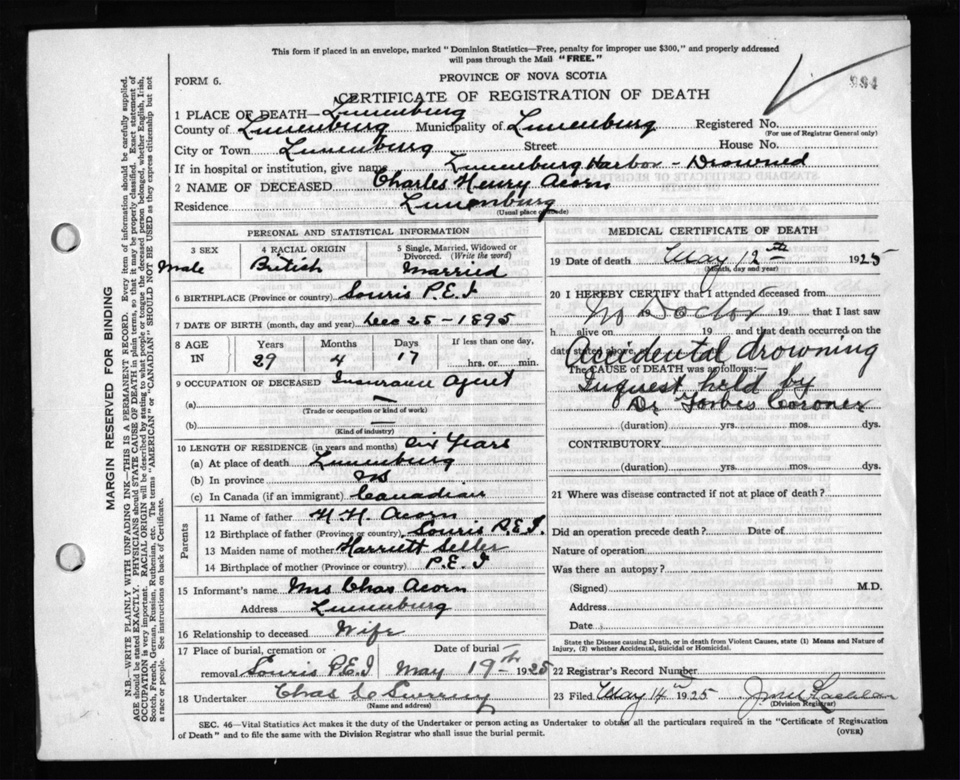 This form if placed in an envelope, marked "Dominion Statistics—Free, penalty for improper use $300," and properly addressed
will pass through the Mail "FREE."
FORM 6.
PROVINCE OF NOVA SCOTIA
984
CERTIFICATE OF REGISTRATION OF DEATH
1 PLACE OF DEATH—Lunenburg
County of Lunenburg Municipality of Lunenburg Registered No.
(For use of Registrar General only)
City or Town Lunenburg Street House No.
If in hospital or institution, give name Lunenburg Harbor - Drowned
2 NAME OF DECEASED Charles Henry Acorn
Residence Lunenburg
(Usual place of abode)
PERSONAL AND STATISTICAL INFORMATION
3 SEX 4 RACIAL ORIGIN 5 Single, Married, Widowed or
Divorced. (Write the word)
Male British Married
6 BIRTHPLACE (Province or country) Souris P.E.I
7 DATE OF BIRTH (month, day and year) Dec 25 - 1895
8 AGE IN Years Months Days If less than one day,
29 4 17 hrs. or min.
9 OCCUPATION OF DECEASED Insurance Agent
(a) —
(Trade or occupation or kind of work)
(b) —
(Kind of industry)
10 LENGTH OF RESIDENCE (in years and months) Six Years
(a) At place of death Lunenburg
(b) In province
(c) In Canada (if an immigrant) Canadian
Parents
11 Name of father H. H. Acorn
12 Birthplace of father (Province or country) Souris P.E.I.
13 Maiden name of mother Harriett
14 Birthplace of mother (Province or country) P.E.I
15 Informant's name Mrs Chas Acorn
Address Lunenburg
16 Relationship to deceased Wife
17 Place of burial, cremation or Date of burial
removal Souris P.E.I May 19th 1925
18 Undertaker Chas
(Name and address)
MEDICAL CERTIFICATE OF DEATH
19 Date of death May 12th 1925
(Month, day and year)
20 I HEREBY CERTIFY that I attended deceased from
No Doctor 19 19 that I last saw
h alive on 19 and that death occurred on the
date stated above
Accidental drowning
The CAUSE of DEATH was as follows:—
Inquest held by
Dr Forbes Coroner
(duration) yrs. mos. dys.
CONTRIBUTORY
(duration) yrs. mos. dys.
21 Where was disease contracted if not at place of death?
Did an operation precede death? Date of
Nature of operation
Was there an autopsy?
(Signed) M.D.
Address
Date
State the Disease causing Death, or in death from Violent Causes, state (1) Means and Nature of
Injury, (2) whether Accidental, Suicidal or Homicidal.
22 Registrar's Record Number
23 Filed May 14th 1925
(Division Registrar)
SEC. 46—Vital Statistics Act makes it the duty of the Undertaker or person acting as Undertaker to obtain all the particulars requires in the "Certificate of Registration
of Death" and to file the same with the Division Registrar who shall issue the burial permit.
(OVER)
MARGIN RESERVED FOR BINDING
N.B.—WRITE PLAINLY WITH UNFADING INK—THIS IS A PERMANENT RECORD. Every item of information should be carefully supplied.
AGE should be stated EXACTLY. PHYSICIANS should STATE CAUSE OF DEATH in plain terms, so that it may be properly classified. Exact statement of
OCCUPATION is very important. RACIAL ORIGIN will be described by stating to what people or tongue the deceased person belonged, whether English, Irish,
Scotch, French, German, Russian, Ruthenian, etc. The terms "AMERICAN" or "CANADIAN" SHOULD NOT BE USED as they express citizenship but not
a race or people. See instructions on back of Certificate.